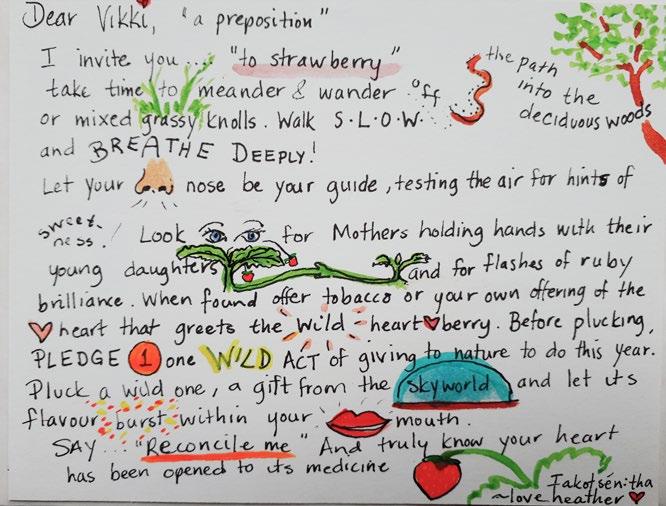 Dear Vikki, "a preposition"
I invite you.... "to strawberry"
take time to meander & wander off the path
or mixed grassy knolls. Walk S.L.O.W. into the
deciduous woods
and BREATHE DEEPLY!
Let your nose be your guide, testing the air for hints of
sweet-
ness! Look for Mothers holding hands with their
young daughters and for flashes of ruby
brilliance. When found offer tobacco or your own offering of the
heart that greets the wild heart berry. Before plucking,
PLEDGE 1 one WILD ACT of giving to nature to do this year.
Pluck a wild one, a gift from the skyworld and let its
flavour burst within your mouth.
SAY... "Reconcile me" And truly know your heart
has been opened to its medicine
Takotsén:tha
~love heather